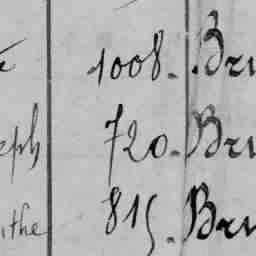 é 1008. Bru
eph 720. Bru
ithe 815. Bru